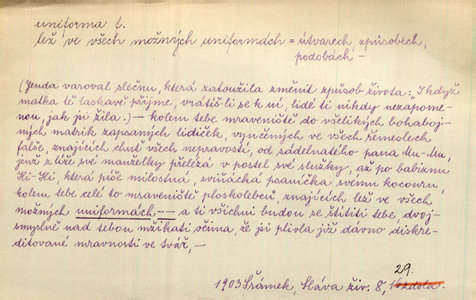 uniforma f.
lež ve všech možných uniformách = útvarech, způsobech,
podobách, –
(Jenda varoval slečnu, která zatoužila změnit způsob života: I když
matka tě laskavě přijme, vrátíš-li se k ní, lidé ti nikdy nezapome-
nou, jak jsi žila.) – kolem tebe mraveniště do všelikých bohaboj-
ných matrik zapsaných lidiček, vyučených ve všech řemeslech
falše, znajících chuť všech nepravostí, od zádelnatého pana Mu-Mu,
jenž z lóže své manželky přelézá v postel své služky, až po babiznu
Hi-Hi, která píše milostná, sviňácká psaníčka svému kocouru,
kolem tebe celé to mraveniště ploskolebců, znajících lež ve všech
možných uniformách – – a ti všichni budou se štítiti tebe, dvoj-
smyslně nad tebou mžikati očima, že jsi plivla již dávno diskre-
ditované mravnosti ve tvář, –
29.
1903 Šrámek Sláva živ. 8,